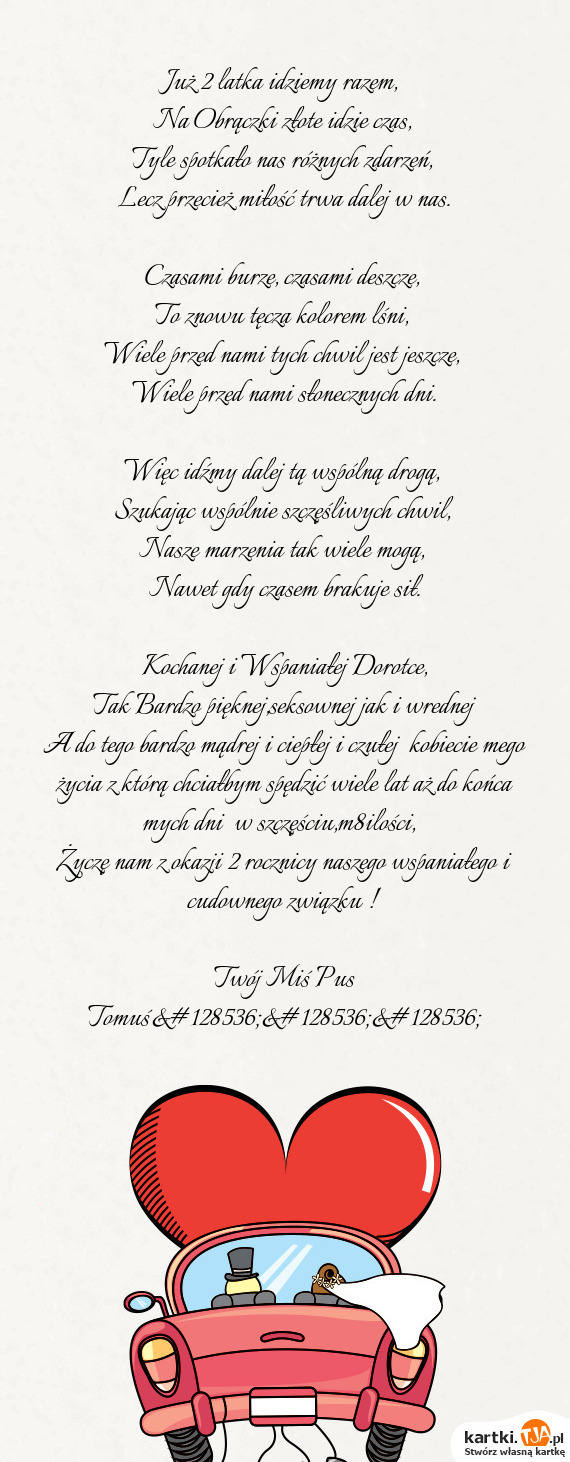 Już 2 latka idziemy razem,
Na Obrączki złote idzie czas,
Tyle spotkało nas różnych zdarzeń,
Lecz przecież miłość trwa dalej w nas.
Czasami burze, czasami deszcze,
To znowu tęcza kolorem lśni,
Wiele przed nami tych chwil jest jeszcze,
Wiele przed nami słonecznych dni.
Więc idźmy dalej tą wspólną drogą,
Szukając wspólnie szczęśliwych chwil,
Nasze marzenia tak wiele mogą,
Nawet gdy czasem brakuje sił.
Kochanej i Wspaniałej Dorotce,
Tak Bardzo pięknej,seksownej jak i wrednej
A do tego bardzo mądrej i ciepłej i czułej kobiecie mego
życia z którą chciałbym spędzić wiele lat aż do końca
mych dni w szczęściu,m8ilości,
Życzę nam z okazji 2 rocznicy naszego wspaniałego i
cudownego związku !
Twój Miś Pus
Tomuś&#128536;&#128536;&#128536;
kartki.TJA.pl
Stwórz własną kartkę